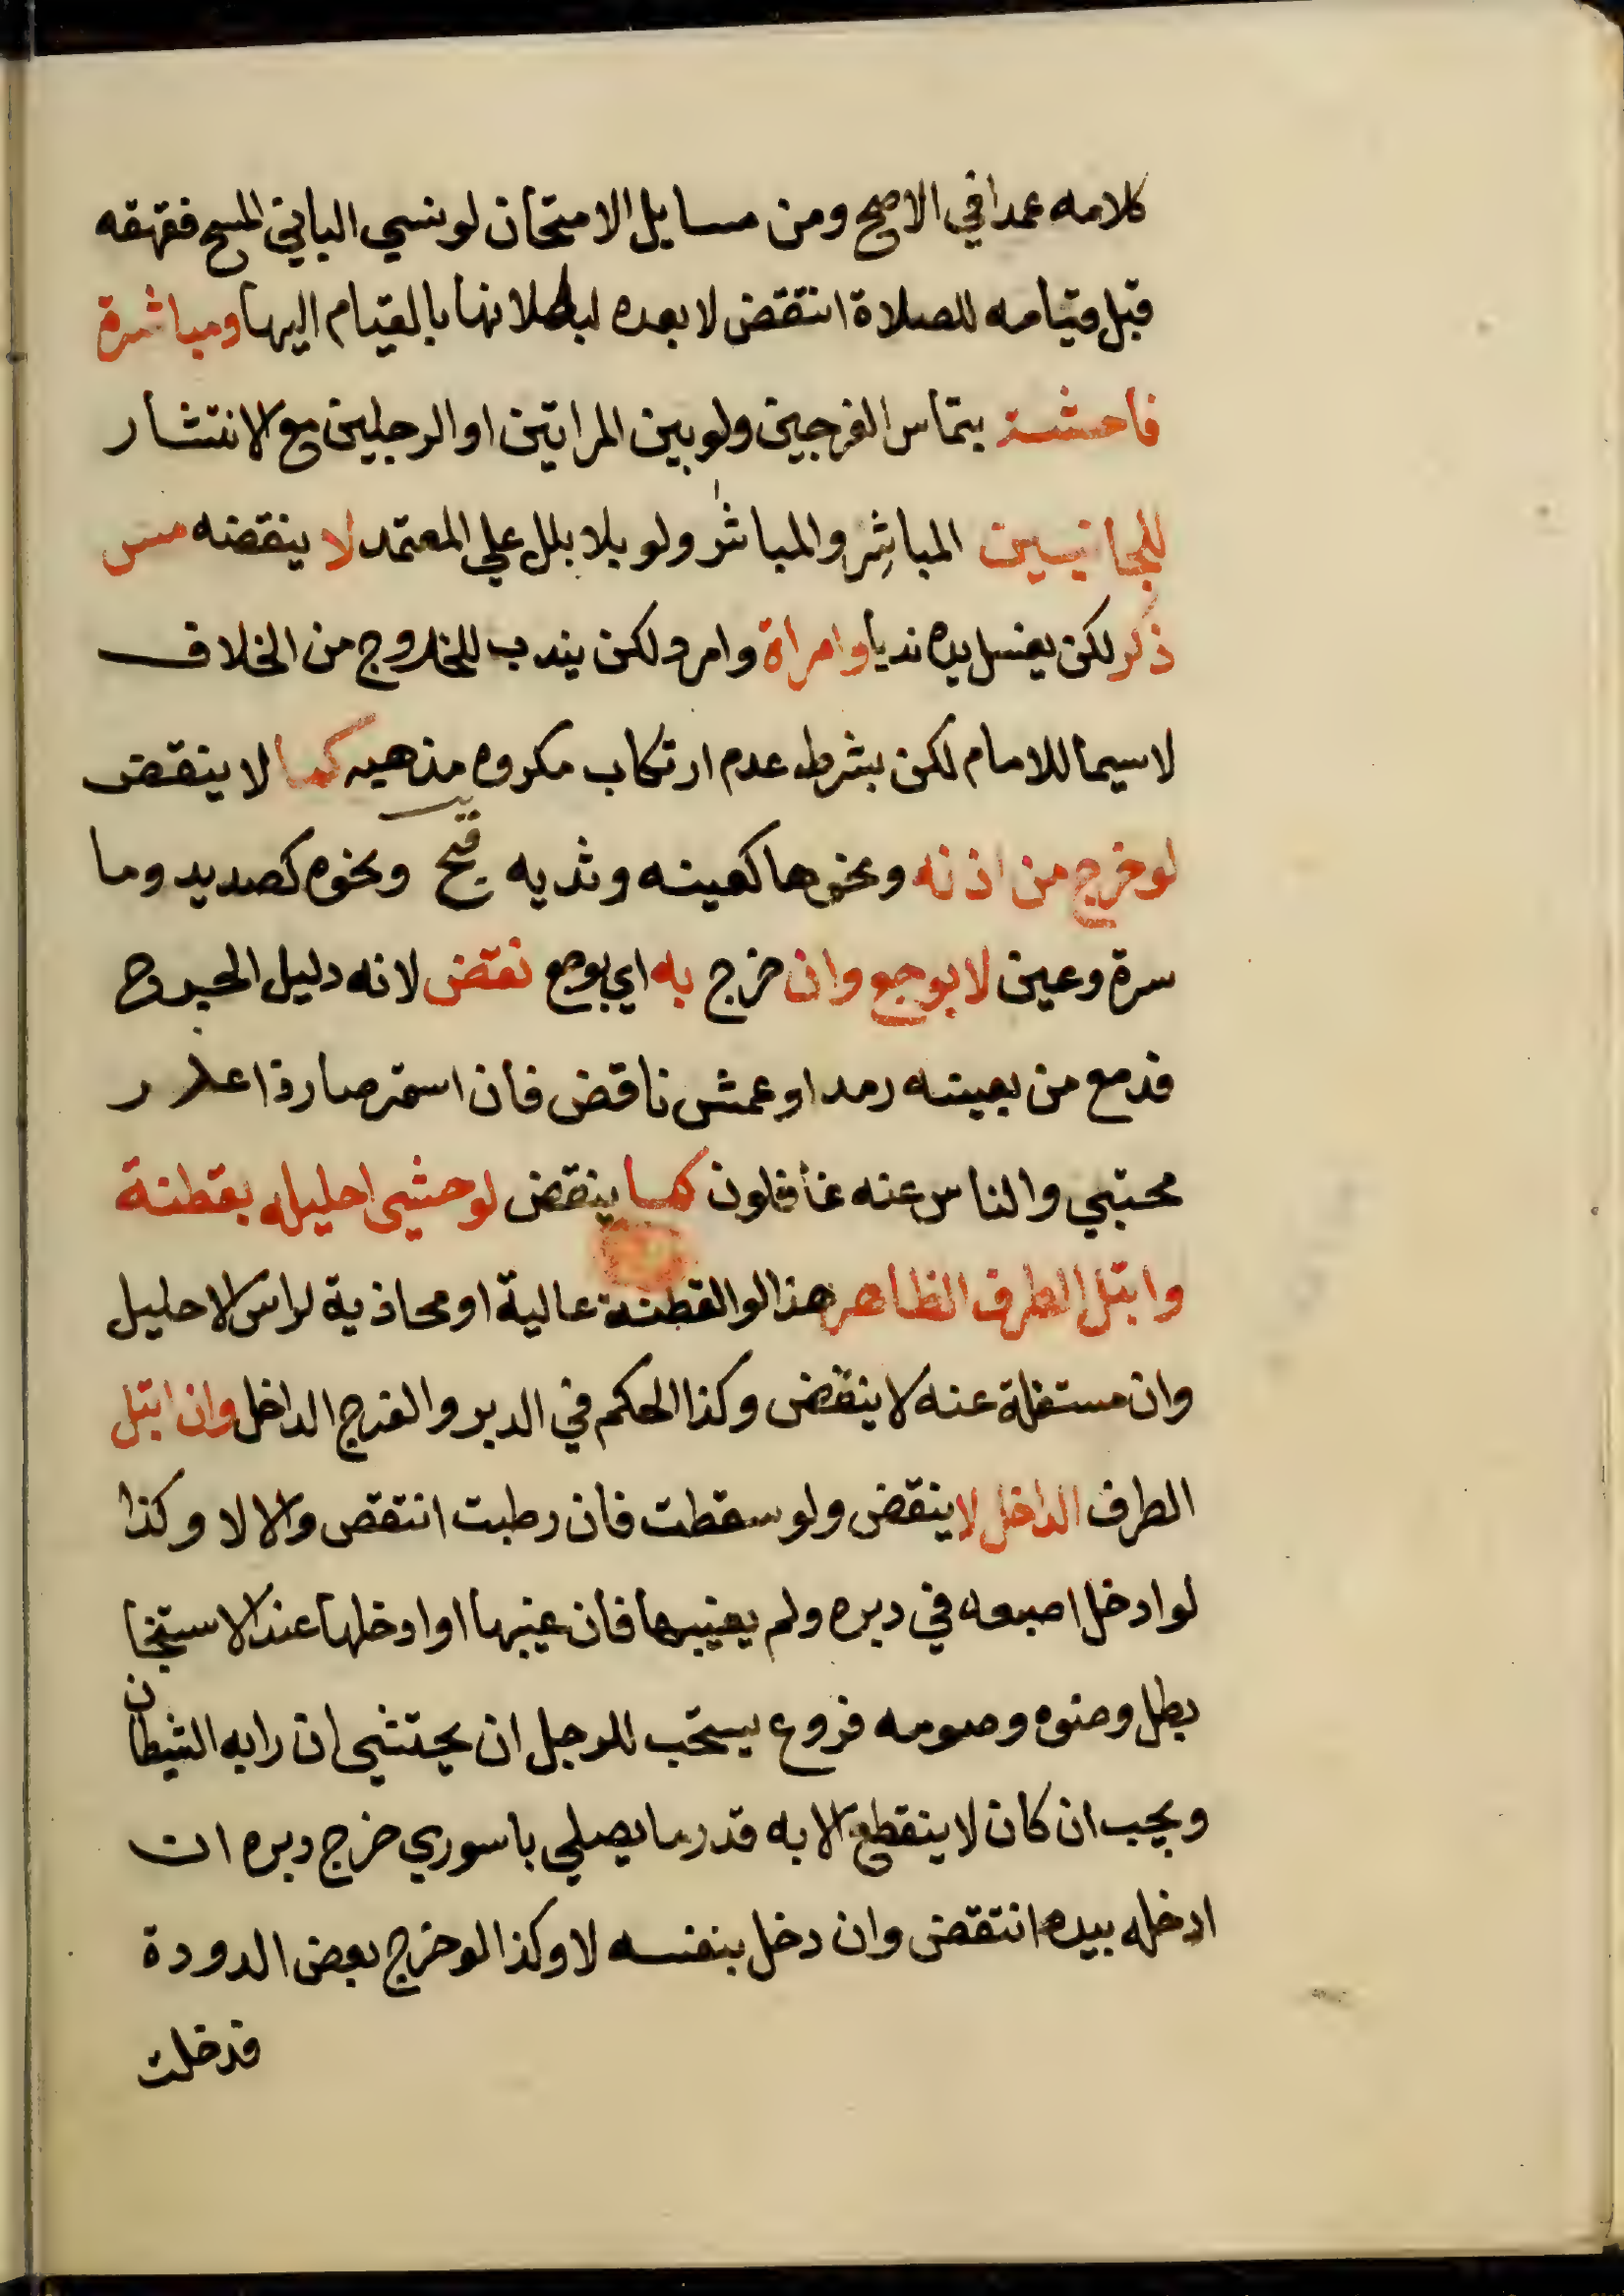 كلامه عمدا في الاصح ومن مسايل الامتحان لو نسي الباني المسح فقهقه
قبل قيامه للصلاة انتقض لا بعده لبطلانها بالقيام اليها ومباشرة
فاحشة بتماس الفرجين ولو بين المراتين او الرجلين مع الانتشار
للجانبين المباشِر والمباشَر ولو بلا بلل علي المعتمد لا ينقضه مس
ذكر لكن يغسل يده ندبا وامراة وامرد لكن يندب للخروج من الخلاف
لاسيما للامام لكن بشرط عدم ارتكاب مكروه مذهبه كما لا ينقض
لو خرج من اذنه ونحوها كعينه وثديه قيح ونحوه كصديد وما
سرة وعين لا بوجع وان خرج به اي بوجع نقض لانه دليل الجرح
فدمع من بعينه رمد او عمش ناقض فان استمر صار ذا عذر
مجتبي والناس عنه غافلون كما ينقض لو حشي احليله بقطنة
وابتل الطرف الظاهر هذا لو القطنة عالية او محاذية لراس الاحليل
وان مستفلة عنه لا ينقض وكذا الحكم في الدبر والفرج الداخل وان ابتل
الطرف الداخل لا ينقض ولو سقطت فان رطبت انتقض والا لا وكذا
لو ادخل اصبعه في دبره ولم يغيبها فان غيبها او ادخلها عند الاستنجا
بطل وضوه وصومه فروع يستحب للرجل ان يحتشي ان رابه الشيطان
ويجب ان كان لا ينقطع الا به قدر ما يصلي باسوري خرج دبره ان
ادخله بيده انتقض وان دخل بنفسه لا وكذا لو خرج بعض الدودة
فدخلت